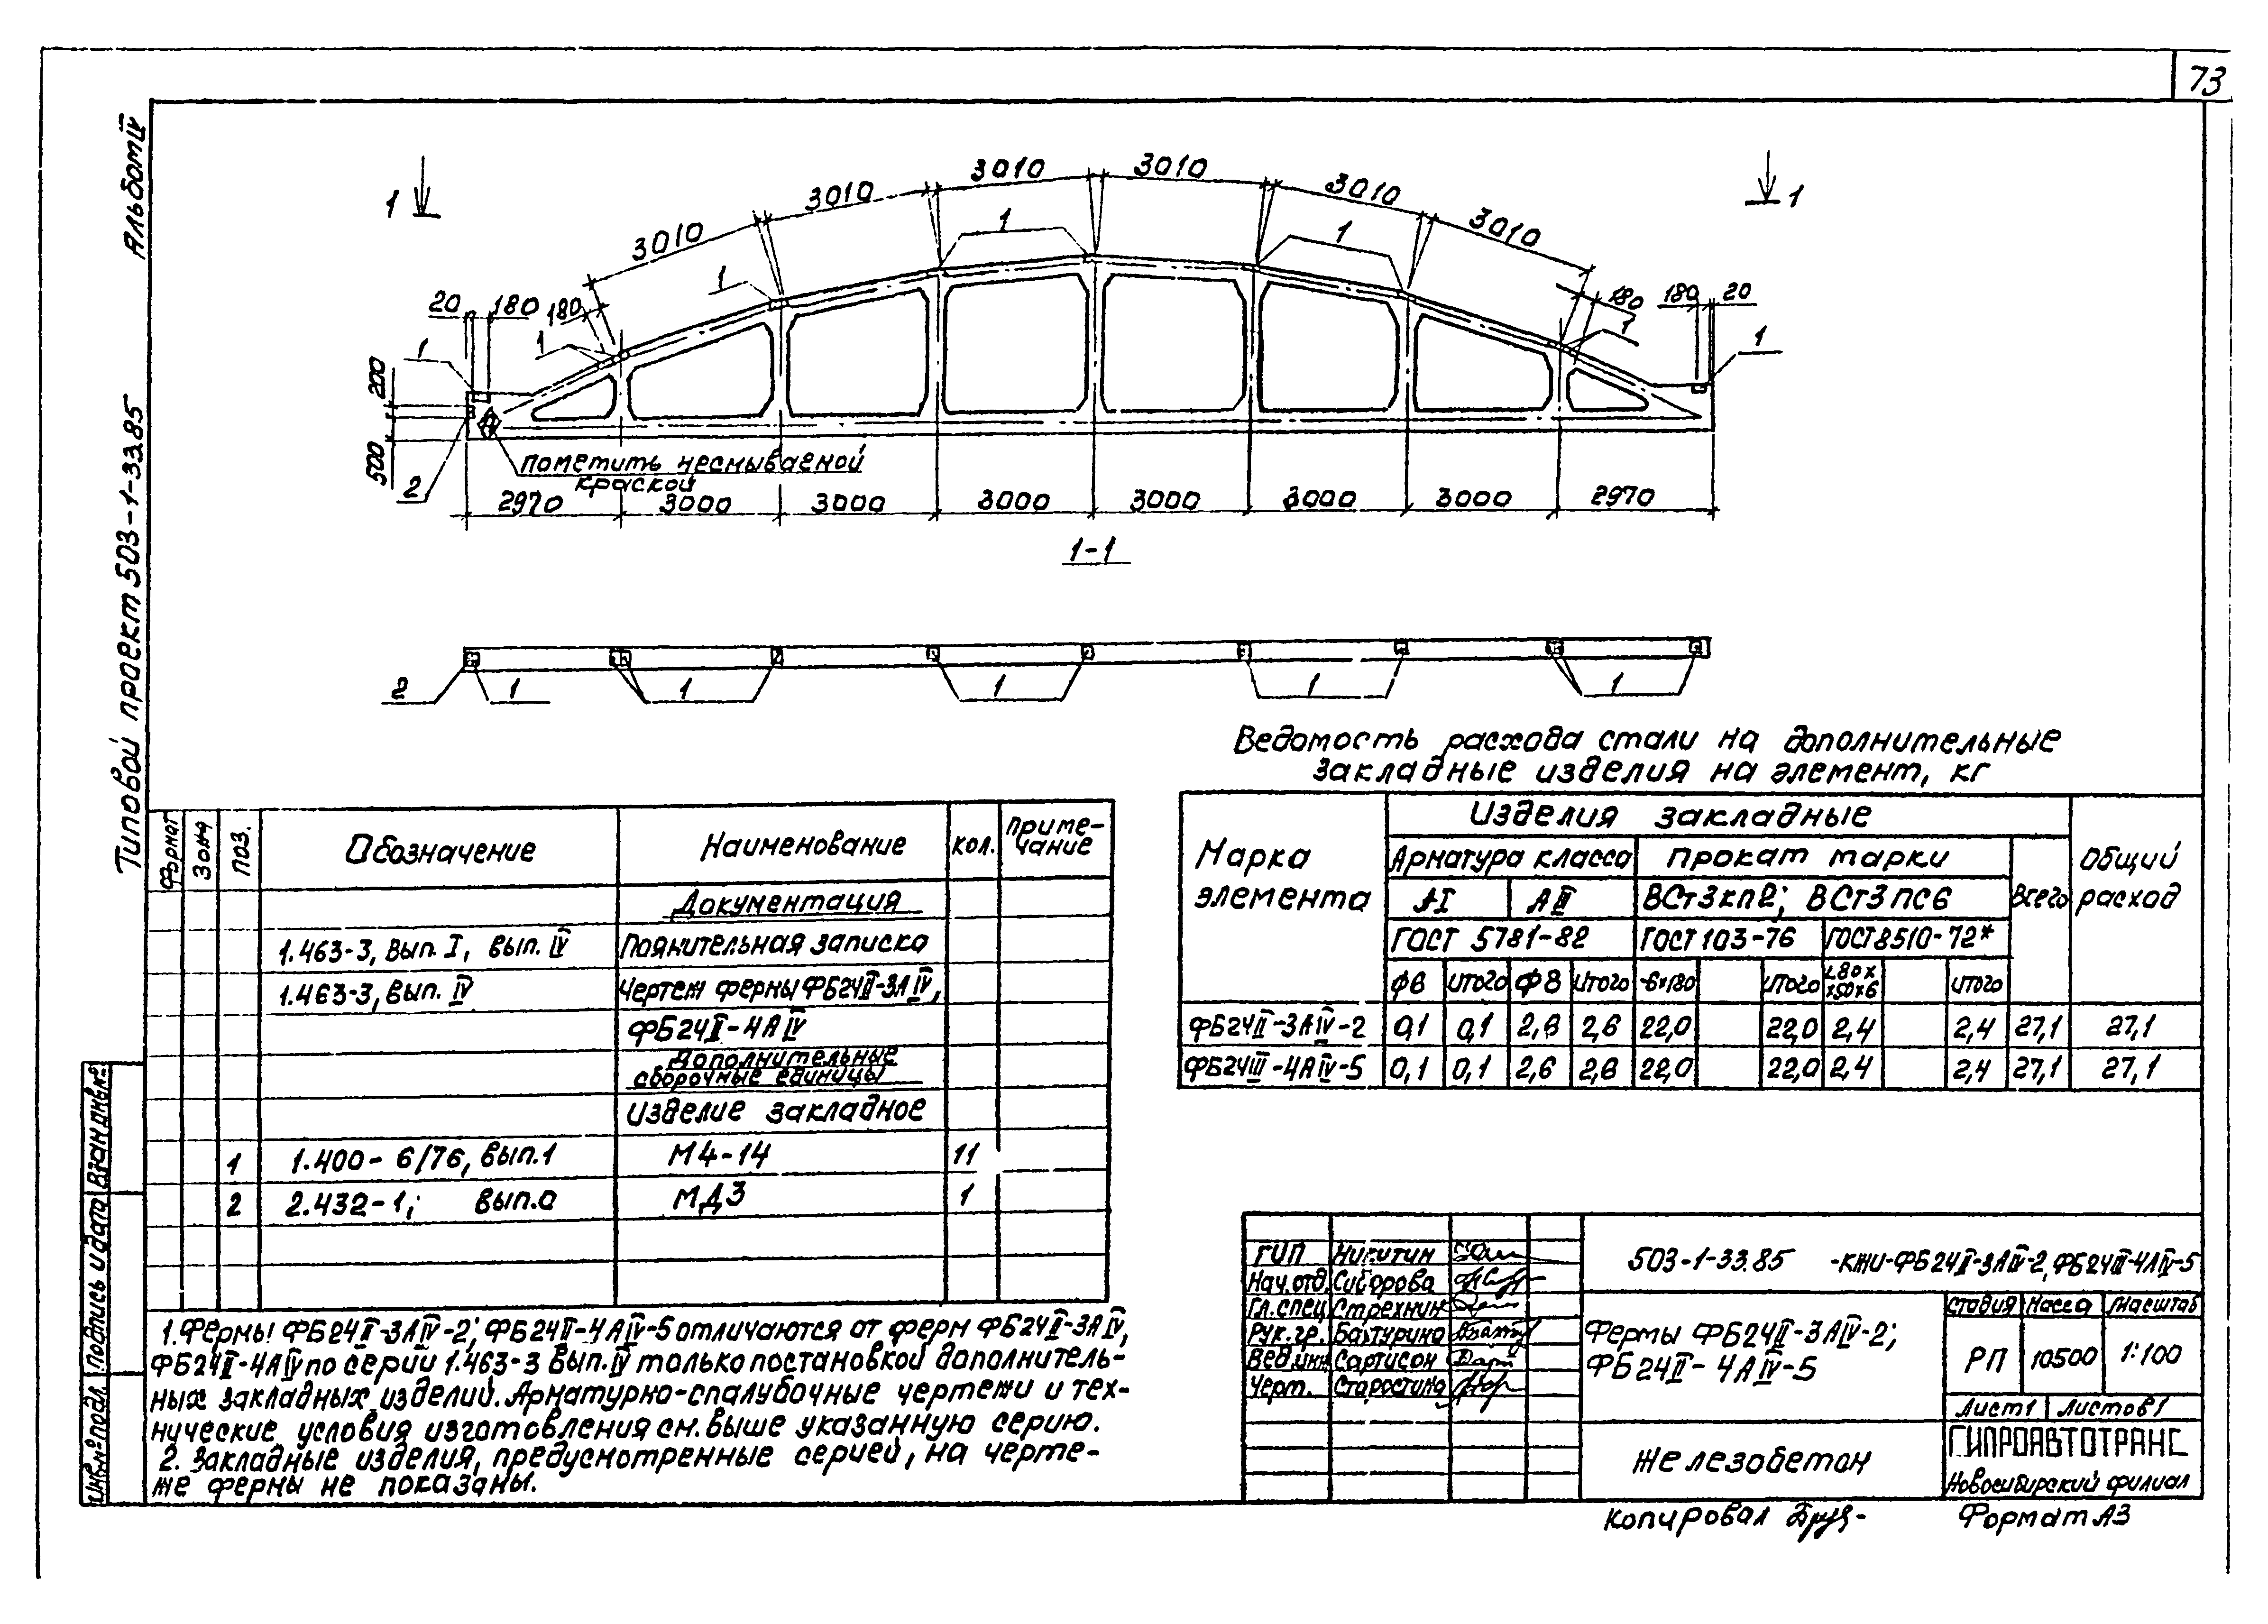 73
Альбом IV
Типовой проект 503-1-33.85
1 1
3010 3010 3010 3010 3010 3010
1 1 1
20 180 180 180 180 20
1 1 1 1
200
500
2
пометить несмываемой
краской
2970 3000 3000 3000 3000 3000 3000 2970
1-1
2 1 1 1 1 1
Ведомость расхода стали на дополнительные
закладные изделия на элемент, кг
Марка элемента
Изделия закладные
Общий расход
Арматура класса
Прокат марки
Всего
АI АIII ВСт3кп2; ВСт3пс6
ГОСТ 5781-82 ГОСТ 103-76 ГОСТ 8510-72*
ф8 Итого ф8 Итого -6×180 Итого L80×
×50×6 Итого
ФБ24II-3АIV-2 0,1 0,1 2,6 2,6 22,0 22,0 2,4 2,4 27,1 27,1
ФБ24III-4АIV-5 0,1 0,1 2,6 2,6 22,0 22,0 2,4 2,4 27,1 27,1
Формат Зона Поз. Обозначение Наименование Кол. Приме-
чание
Документация
1.463-3, вып. I, вып. IV Пояснительная записка
1.463-3, вып. IV Чертеж фермы ФБ24II-3АIV,
ФБ24II-4АIV
Дополнительные
сборочные единицы
Изделие закладное
1 1.400-6/76, вып.1 М4-14 11
2 2.432-1; вып.0 МД3 1
1. Фермы ФБ24II-3АIV-2; ФБ24II-4АIV-5 отличаются от ферм ФБ24II-3АIV,
ФБ24II-4АIV по серии 1.463-3 вып. IV только постановкой дополнитель-
ных закладных изделий. Арматурно-опалубочные чертежи и тех-
нические условия изготовления см. выше указанную серию.
2. Закладные изделия, предусмотренные серией, на черте-
же фермы не показаны.
Взам.инв.№
Подпись и дата
Инв.№ подл.
ГИП Никитин
Нач.отд. Сидорова
Гл.спец. Стрехнин
Рук.гр. Бахтурина
Вед.инж. Сартисон
Черт. Старостина
503-1-33.85 -КЖИ-ФБ24II-3АIV-2, ФБ24III-4АIV-5
Фермы ФБ24II-3АIV-2;
ФБ24II-4АIV-5
Стадия Масса Масштаб
РП 10500 1:100
Лист 1 Листов 1
Железобетон
ГИПРОАВТОТРАНС
Новосибирский филиал
Копировал
Формат А3